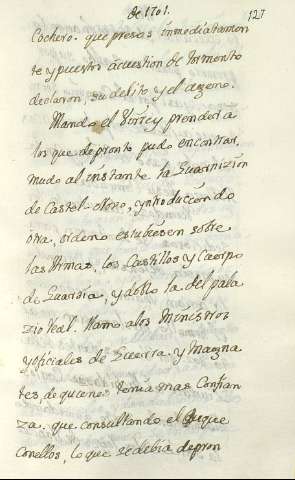 de 1701.
127
Cochero. que presos inmediatamen
te y puestos a cuestion de tormento
declaron, su delito y el ageno.
Mando el Virrey prender a
los que de pronto pudo encontrar,
mudo al instante la Guarnizion
de Castel-novo, yntroduciendo
otra, ordeno estubiesen sobre
las Armas, los Castillos y Cuerpo
de Guardia, y doblo la del pala
zio Real. Llamo a los Ministros
y oficiales de Guerra y Magna
tes, de quienes tenia mas Confian
za, que consultando el Duque
con ellos, lo que se debia de pron